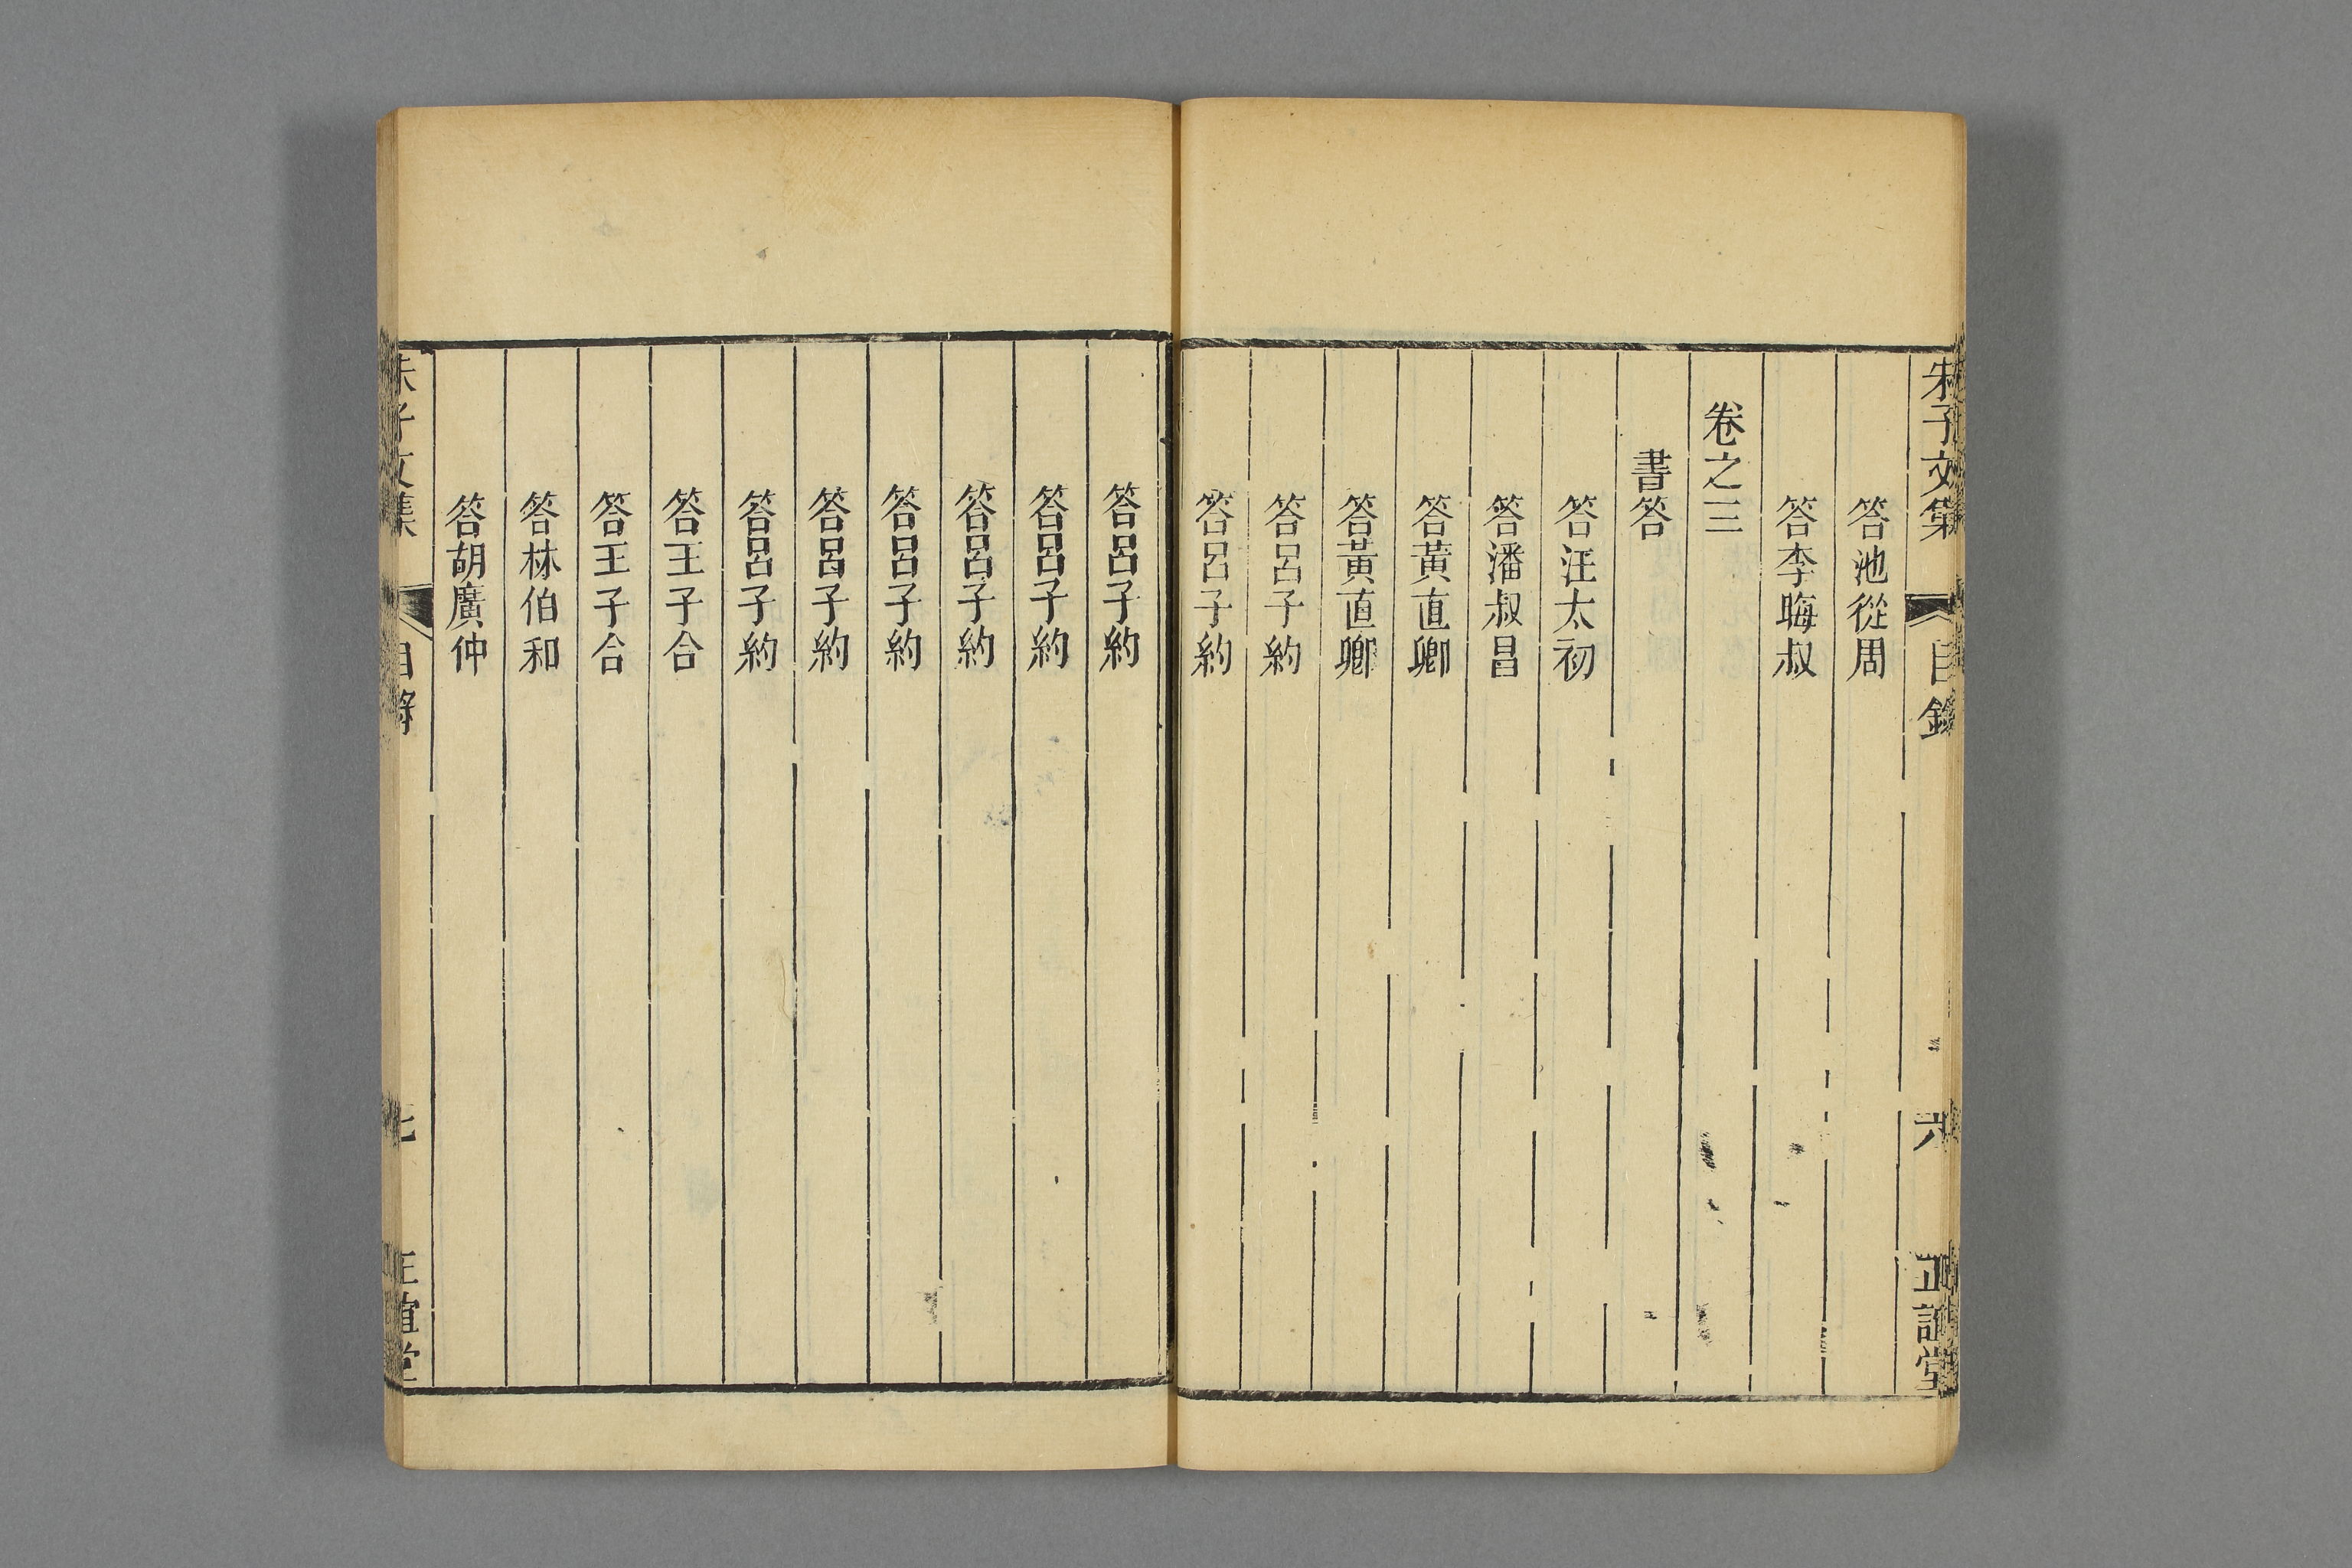 朱子文集 目錄 六 正誼堂
答池從周
答李晦叔
卷之三
書答
答汪太初
答潘叔昌
答黃直卿
答黃直卿
答呂子約
答呂子約
答呂子約
答呂子約
答呂子約
答呂子約
答呂子約
答呂子約
答王子合
答王子合
答林伯和
答胡廣仲
朱子文集 目錄 七 正誼堂